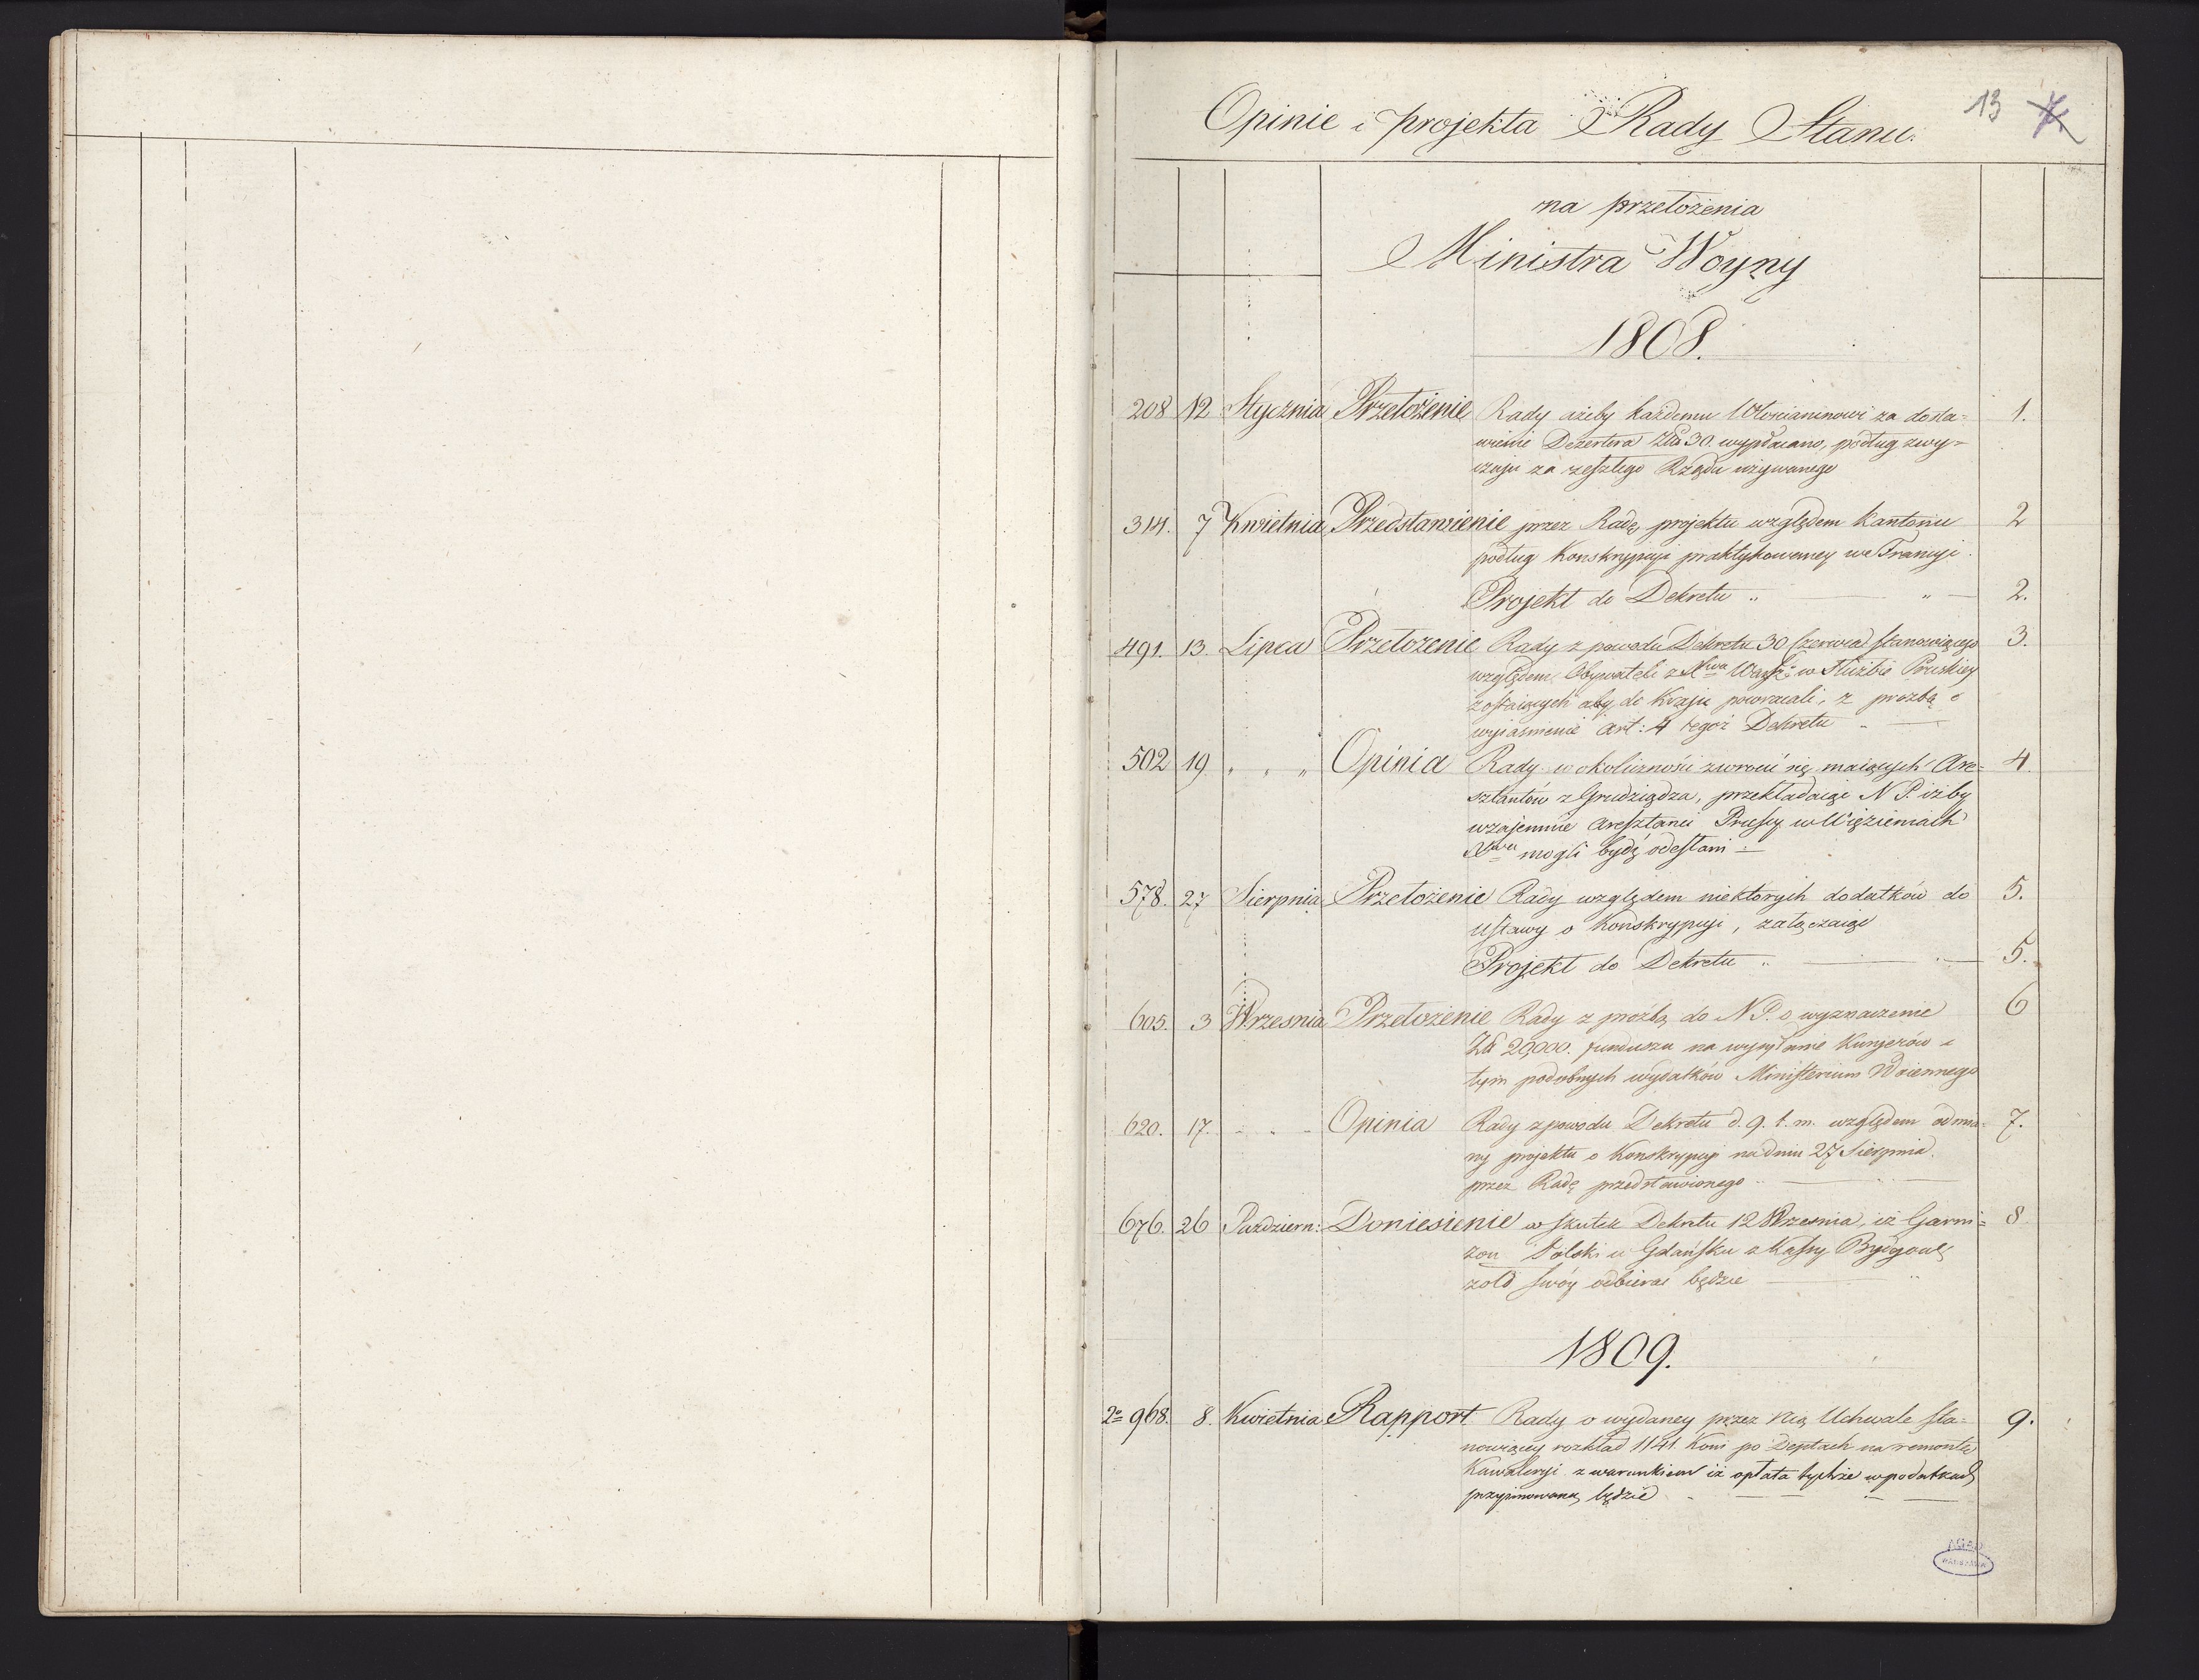 13 7.
Opinie i projekta Rady Stanu.
na przełożenia
Ministra Woyny
1808.
208 12 Stycznia Przełożenie Rady ażeby każdemu Włościaninowi za dosta= 1.
wienie Dezertera Złł 30. wypłacano, podług zwy=
czaju za zeszłego Rządu używanego
314. 7 Kwietnia Przedstawienie przez Radę projektu względem kantonu 2
podług Konskrypcyi praktykowaney we Francyi.
Projekt do Dekretu „ — „ — 2.
491. 13. Lipca Przełożenie Rady z powodu Dekretu 30 Czerwca stanowiącego 3.
względem Obywateli z Xwa Warsz: w Służbie Pruskiey
zostaiących aby do Kraju powracali, z prozbą o
wyiaśnienie art: 4 tegoż Dekretu „ —
502 19 „ „ „ Opinia Rady w okoliczności zwrócić się maiących Are= 4.
sztantów z Grudziądza, przekładaiąc N P. iżby
wzajemnie Aresztanci Pruscy w Więzieniach
Xwa mogli bydź odesłani —
578. 27 Sierpnia Przełożenie Rady względem niektorych dodatków do 5.
Ustawy o Konskrypcyi, załączaiąc
Projekt do Dekretu „ — „ — 5.
605. 3 Wrzesnia Przełożenie Rady z prożbą do N P. o wyznaczenie 6
Złł 20,000. funduszu na wysyłanie Kuryerów i
tym podobnych wydatków Ministerium Woiennego
620. 17. „ „ „ Opinia Rady z powodu Dekretu d. 9. t. m. względem odmia= 7.
ny projektu o Konskrypcyi na dniu 27 Sierpnia
przez Radę przedstawionego „ — „ —
676. 26 Pazdziern: Doniesienie w skutek Dekretu 12 Wrzesnia, iż Garni= 8
zon Polski w Gdańsku z Kassy Bydgowsk
zołd swóy odbierać będzie — „
1809.
2o 968. 8. Kwietnia Rapport Rady o wydaney przez nią Uchwale sta= 9.
nowiącey rozkład 1141. Koni po Deptach na remontę
Kawaleryi z warunkiem iż opłata tychże w podatkach
przyimowaną będzie — — — —
AGAD
WARSZAWA